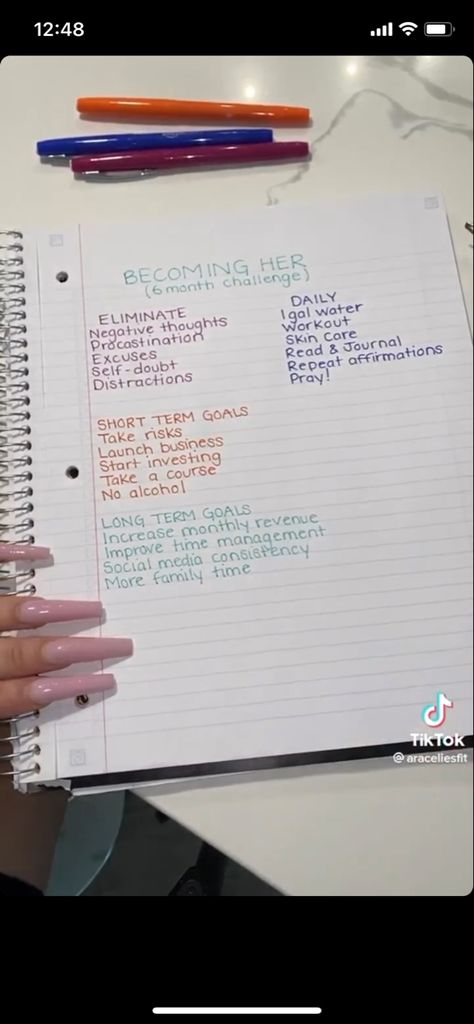 12:48
BECOMING HER
(6 month challenge)
ELIMINATE
Negative thoughts
Procastination
Excuses
Self-doubt
Distractions
DAILY
1 gal water
Workout
Skin Care
Read & Journal
Repeat affirmations
Pray!
SHORT TERM GOALS
Take risks
Launch business
Start investing
Take a course
No alcohol
LONG TERM GOALS
Increase monthly revenue
Improve time management
Social media consistency
More family time
TikTok
@araceliesfit